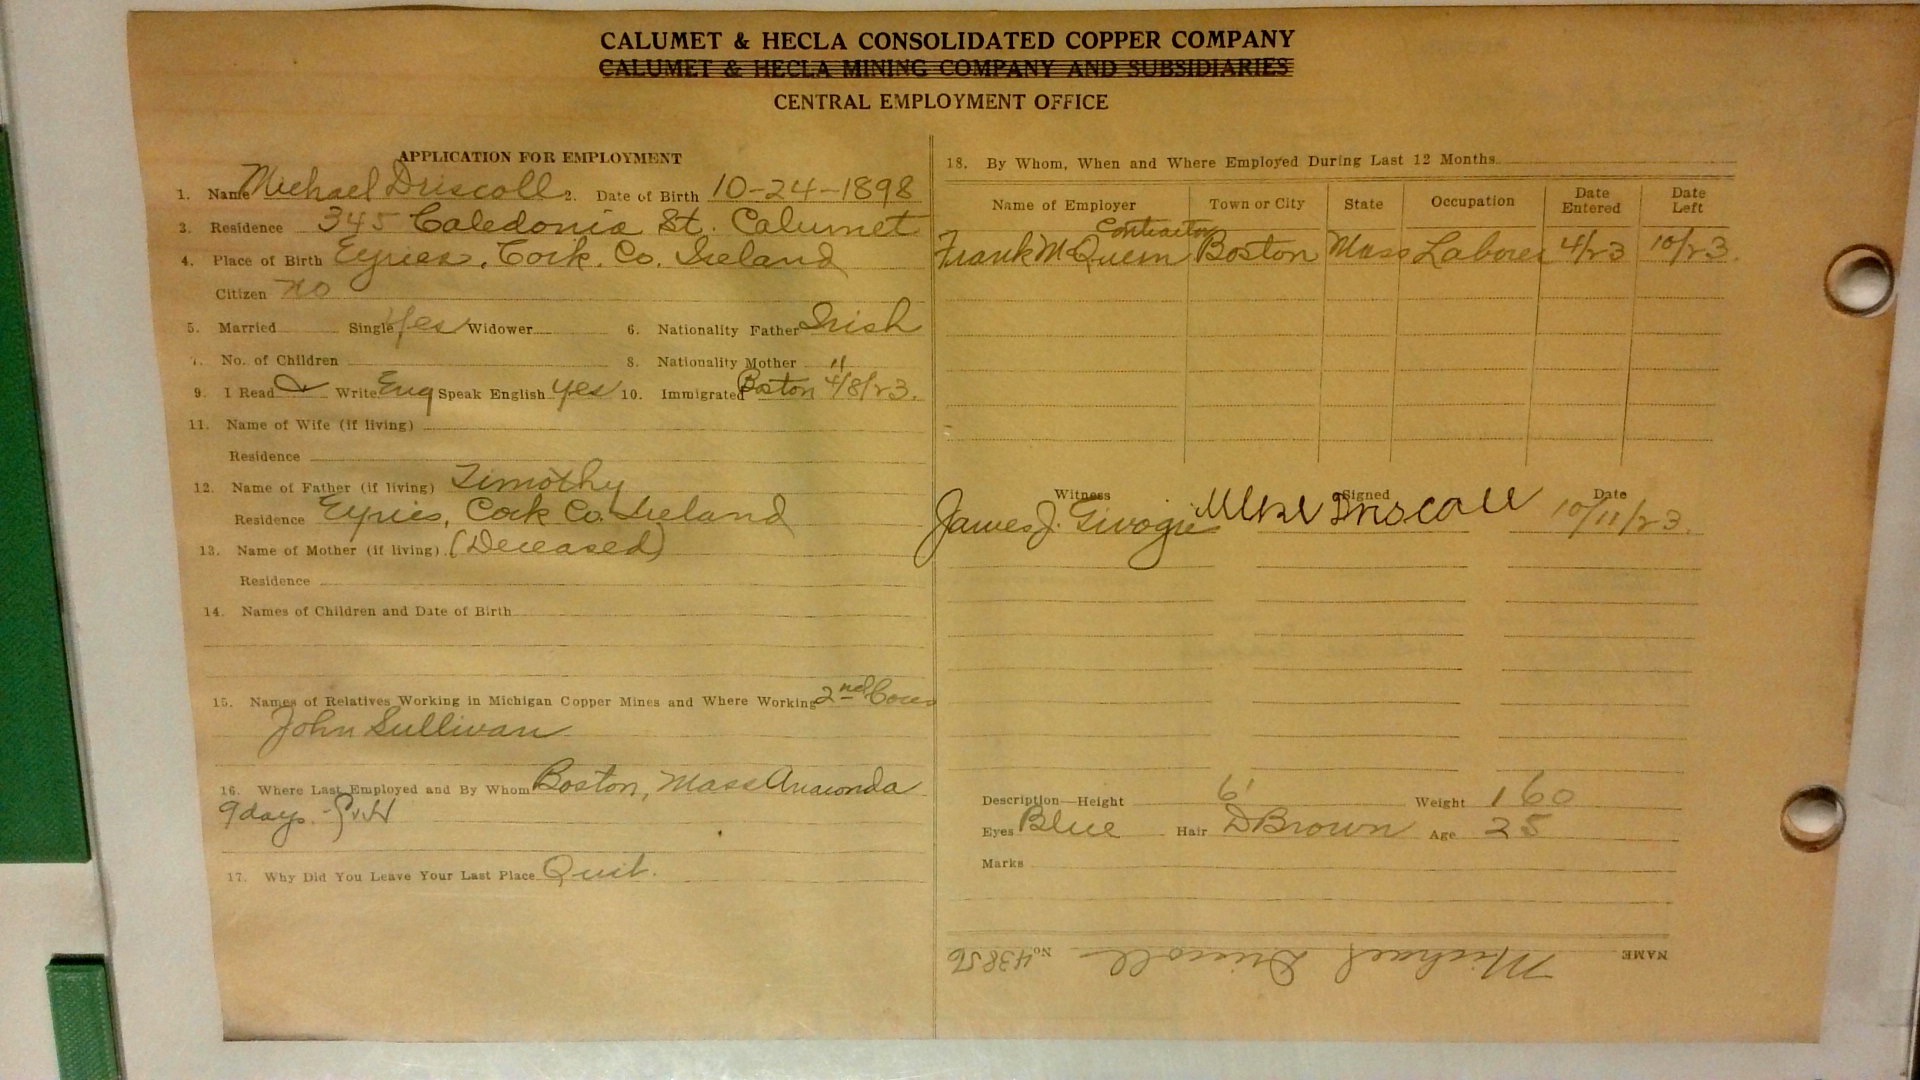 CALUMET & HECLA CONSOLIDATED COPPER COMPANY
CALUMET & HECLA MINING COMPANY AND SUBSIDIARIES
CENTRAL EMPLOYMENT OFFICE
APPLICATION FOR EMPLOYMENT
1. Name Michael Driscoll 2. Date of Birth 10-24-1898
3. Residence 345 Caledonia St. Calumet
4. Place of Birth Eyries, Cork. Co. Ireland
Citizen no
5. Married Single Yes Widower 6. Nationality Father Irish
7. No. of Children 8. Nationality Mother "
9. I Read & Write Eng Speak English yes 10. Immigrated Boston 4/8/23.
11. Name of Wife (if living)
Residence
12. Name of Father (if living) Timothy
Residence Eyries, Cork Co. Ireland
13. Name of Mother (if living) (Deceased)
Residence
14. Names of Children and Date of Birth
15. Names of Relatives Working in Michigan Copper Mines and Where Working 2nd
John Sullivan
16. Where Last Employed and By Whom Boston, Mass Anaconda
9 days.
17. Why Did You Leave Your Last Place Quit.
18. By Whom, When and Where Employed During Last 12 Months
Name of Employer Town or City State Occupation Date Entered Date Left
Contractor
Frank Boston Mass Laborer 4/23 10/23.
Witness Signed Date
James J. Mike Driscoll 10/11/23.
Description—Height 6' Weight 160
Eyes Blue Hair D Brown Age 25
Marks
NAME Michael Driscoll No. 43856